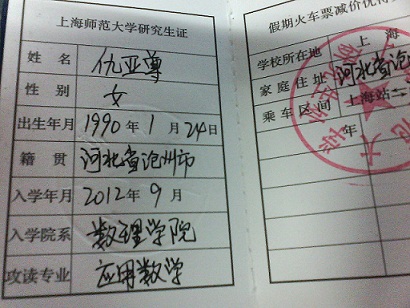 上海师范大学研究生证
姓名 仇亚尊
性别 女
出生年月 1990年1月24日
籍贯 河北省沧州市
入学年月 2012年9月
入学院系 数理学院
攻读专业 应用数学
假期火车票减价优待
学校所在地 上海
家庭住址 河北省沧
乘车区间 上海站
年